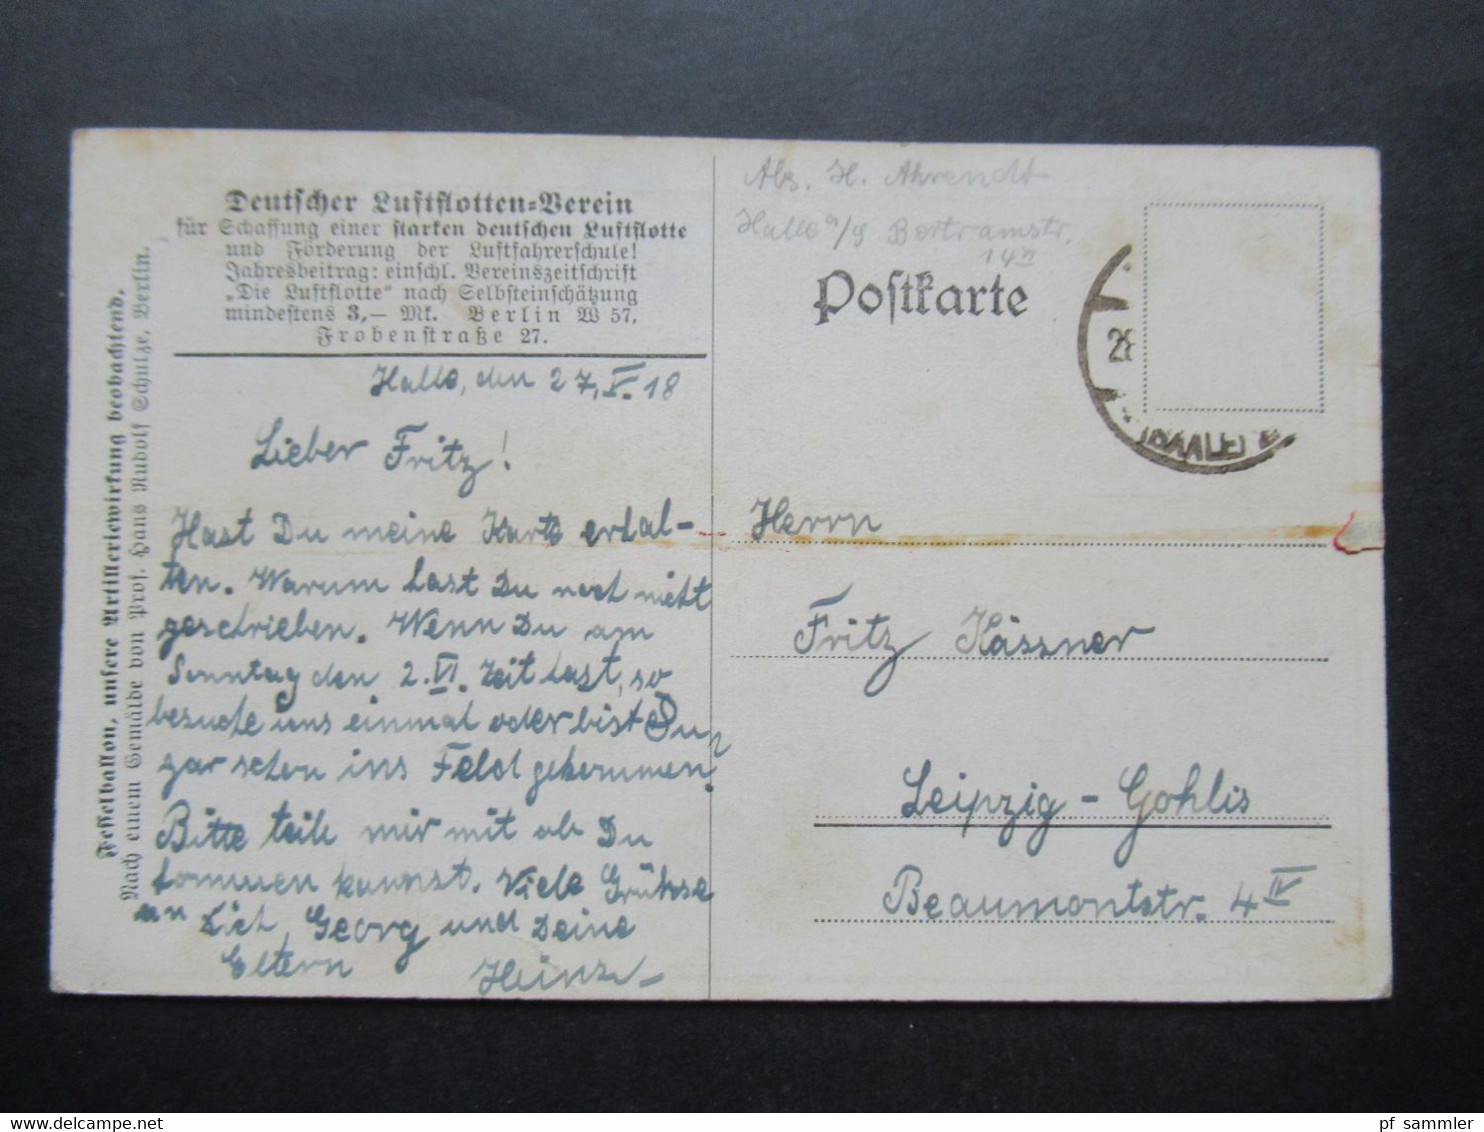 Deutscher Luftflotten-Verein
für Schaffung einer starken deutschen Luftflotte
und Förderung der Luftfahrerschule!
Jahresbeitrag: einschl. Vereinszeitschrift
„Die Luftflotte“ nach Selbsteinschätzung
mindestens 3,— Mk. Berlin W 57,
Frobenstraße 27.
Fesselballon, unsere Artilleriewirkung beobachtend.
Nach einem Gemälde von Prof. Hans Rudolf Schulze, Berlin.
Halle, den 27, V. 18
Lieber Fritz!
Hast Du meine Karte erhal-
ten. Warum hast Du noch nicht
geschrieben. Wenn Du am
Sonntag den 2. VI. Zeit hast, so
besuche uns einmal oder bist Du
gar schon ins Feld gekommen?
Bitte teile mir mit ob Du
kommen kannst. Viele Grüsse
an Dich, Georg und Deine
Eltern Heinz
Abs. H. Ahrendt
Halle a/S Bertramstr.
14
Postkarte
28
(SAALE)
Herrn
Fritz Kässner
Leipzig - Gohlis
Beaumontstr. 4 IV
pf sammler
www.delcampe.net